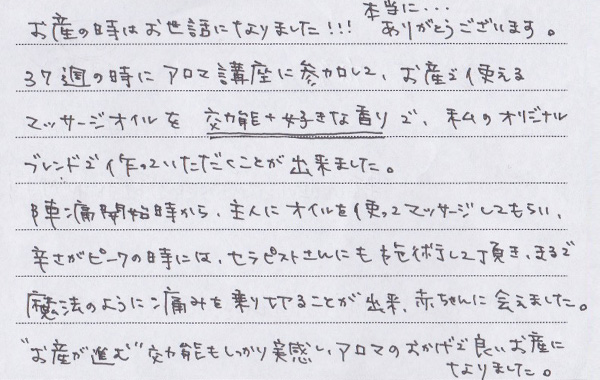 お産の時はお世話になりました!!! 本当に...ありがとうございます。
37週の時にアロマ講座に参加して、お産で使える
マッサージオイルを 効能+好きな香りで、私のオリジナル
ブレンドで作っていただくことが出来ました。
陣痛開始時から、主人にオイルを使ってマッサージしてもらい、
辛さがピークの時には、セラピストさんにも施術して頂き、まるで
魔法のように痛みを乗り切ることが出来、赤ちゃんに会えました。
"お産が進む"効能もしっかり実感し、アロマのおかげで良いお産に
なりました。